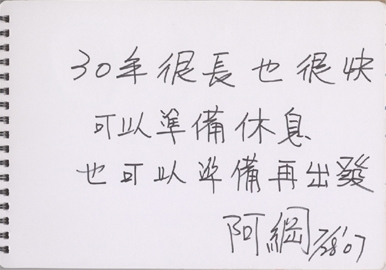 30年很長也很快
可以準備休息
也可以準備再出發
阿綱 7/28'07